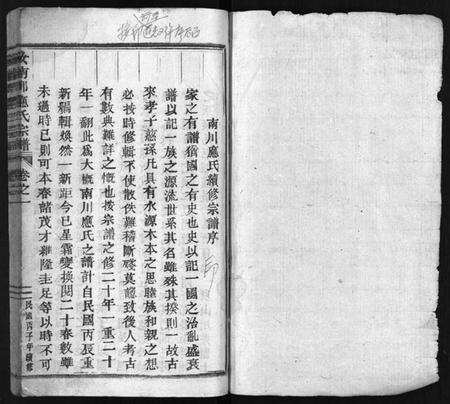 南川應氏續修宗譜序
家之有譜猶國之有史也史以記一國之治亂盛衰
譜以記一族之源流世系其名雖殊其揆則一故古
來孝子慈孫凡具有水源木本之思睦族和親之想
必按時修輯不使散佚難稽斷殘莫認致後人考古
有數典難詳之慨也按宗譜之修二十年一重二十
年一翻此爲大概南川應氏之譜計自民國丙辰重
新編輯煥然一新距今已星霜變換閱二十春數雖
未過時已則可本春諸茂才雜隆圭足等以時不可
汝南郡應氏宗譜
卷之一
民國丙子年續修